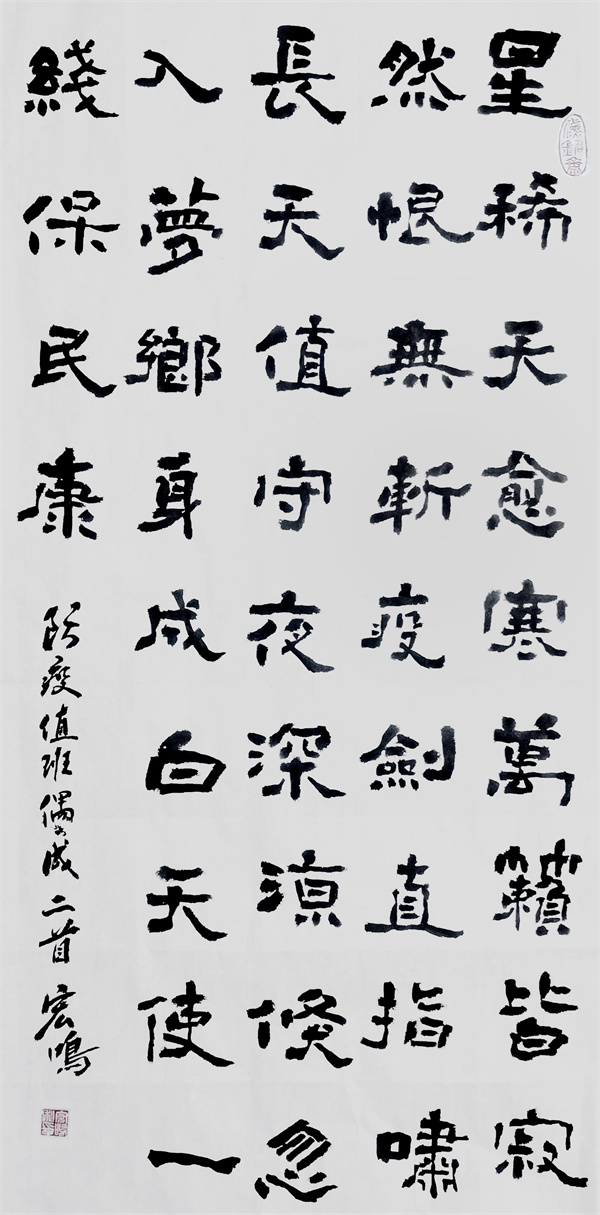 星稀天愈寒萬籟皆寂
然恨無斬疫劍直指嘯
長天值守夜深涼倏忽
入夢鄉身成白天使一
綫保民康
防疫值班偶成二首 宏鳴